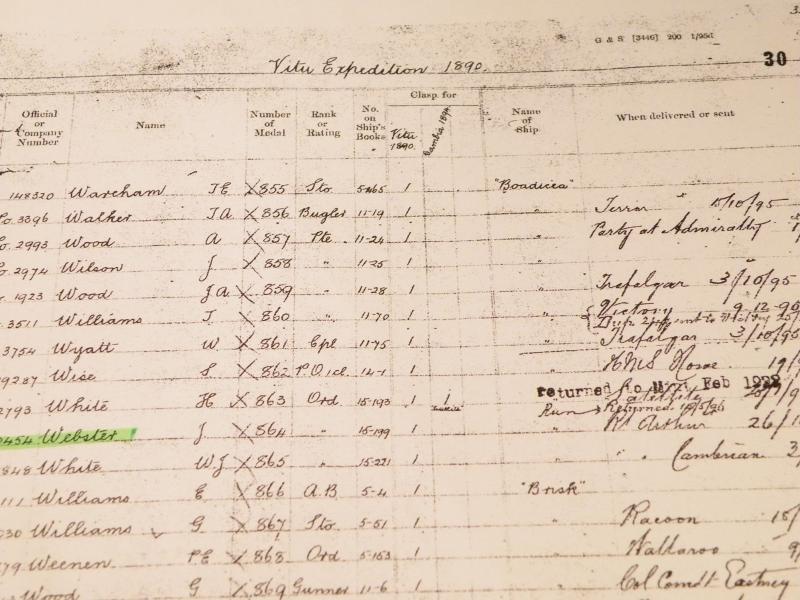 G & S [3446] 200 1/95d
Vitu Expedition 1890.
30
Official or Company Number
Name
Number of Medal
Rank or Rating
No. on Ship's Books
Clasp for
Vitu 1890.
Gambia 1894.
Name of Ship.
When delivered or sent
148320 Wareham J E X 855 Sto. 5-165 1 "Boadicea"
3396 Walker J A X 856 Bugler 11-19 1 " Terror 5/10/95
2993 Wood A X 857 Pte 11-24 1 " Party at Admiralty
2974 Wilson J X 858 " 11-25 1 "
1923 Wood J A X 859 " 11-28 1 " Trafalgar 3/10/95
3511 Williams J X 860 " 11-70 1 " Victory 9-12-96
3754 Wyatt W X 861 Cpl 11-75 1 " Trafalgar 3/10/95
9287 Wise S X 862 P.O 1cl. 14-1 1 " HMS
returned to Mint Feb 1922
2793 White H X 863 Ord 15-193 1 1 " Run Returned
454 Webster J X 864 " 15-199 1 " Rl Arthur 26/
848 White W J X 865 " 15-221 1 " " Cambrian
111 Williams E X 866 A.B 5-4 1 "Brisk"
030 Williams G X 867 Sto. 5-51 1 " Racoon
79 Weenen P E X 868 Ord 5-153 1 " Wallaroo
Wood G X 869 Gunner 11-6 1 " Col Comdt Eastney